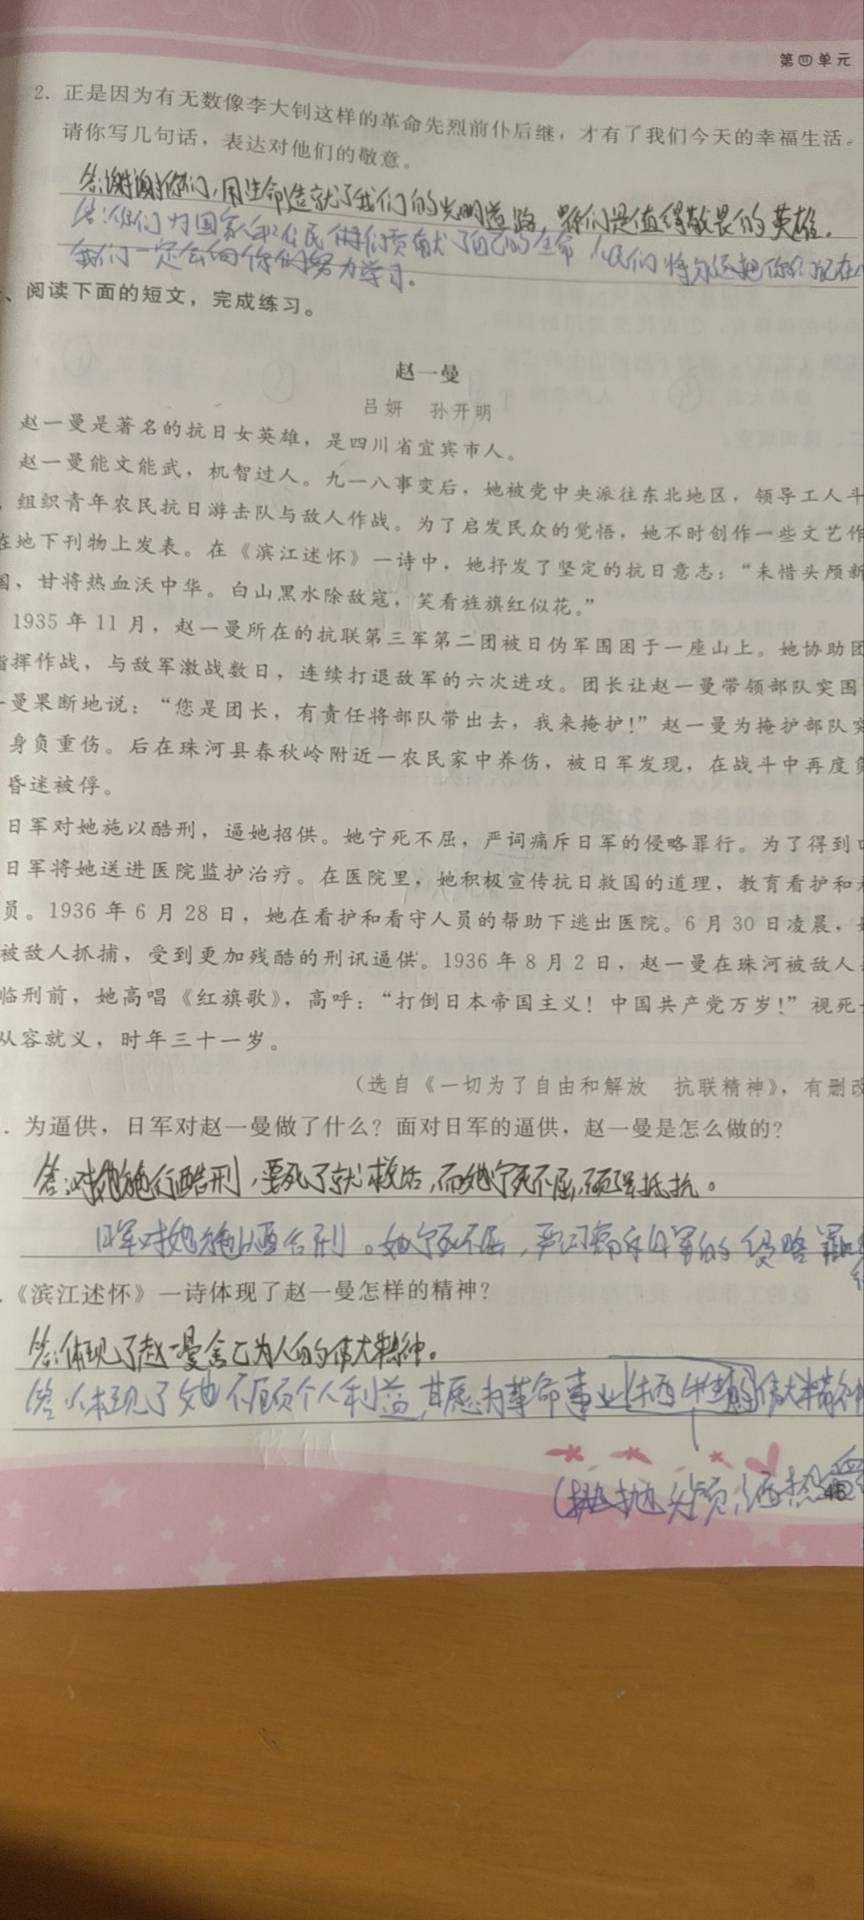 第四单元
2. 正是因为有无数像李大钊这样的革命先烈前仆后继，才有了我们今天的幸福生活。
请你写几句话，表达对他们的敬意。
答:谢谢你们,用生命造就了我们的光明道路,你们是值得敬畏的英雄.
答:你们为国家和人民 贡献了自己的生命,我们将永远把你们记在
我们一定会向你们努力学习.
、阅读下面的短文，完成练习。
赵一曼
吕妍 孙开明
赵一曼是著名的抗日女英雄，是四川省宜宾市人。
赵一曼能文能武，机智过人。九一八事变后，她被党中央派往东北地区，领导工人斗
，组织青年农民抗日游击队与敌人作战。为了启发民众的觉悟，她不时创作一些文艺作
在地下刊物上发表。在《滨江述怀》一诗中，她抒发了坚定的抗日意志：“未惜头颅新
国，甘将热血沃中华。白山黑水除敌寇，笑看旌旗红似花。”
1935 年 11 月，赵一曼所在的抗联第三军第二团被日伪军围困于一座山上。她协助团
指挥作战，与敌军激战数日，连续打退敌军的六次进攻。团长让赵一曼带领部队突围
一曼果断地说：“您是团长，有责任将部队带出去，我来掩护！”赵一曼为掩护部队突
身负重伤。后在珠河县春秋岭附近一农民家中养伤，被日军发现，在战斗中再度负
昏迷被俘。
日军对她施以酷刑，逼她招供。她宁死不屈，严词痛斥日军的侵略罪行。为了得到口
日军将她送进医院监护治疗。在医院里，她积极宣传抗日救国的道理，教育看护和
员。1936 年 6 月 28 日，她在看护和看守人员的帮助下逃出医院。6 月 30 日凌晨，
被敌人抓捕，受到更加残酷的刑讯逼供。1936 年 8 月 2 日，赵一曼在珠河被敌人
临刑前，她高唱《红旗歌》，高呼：“打倒日本帝国主义！中国共产党万岁！”视死
从容就义，时年三十一岁。
（选自《一切为了自由和解放 抗联精神》，有删改
. 为逼供，日军对赵一曼做了什么？面对日军的逼供，赵一曼是怎么做的？
答:对她施行酷刑,要死了就救活,而她宁死不屈,顽强抵抗。
日军对她施以酷刑。她宁死不屈,严词痛斥日军的侵略罪
.《滨江述怀》一诗体现了赵一曼怎样的精神？
答:体现了赵一曼舍己为人的伟大精神。
答:体现了她不顾个人利益,甘愿为革命事业牺牲的伟大精神
(抛头颅,洒热血
45